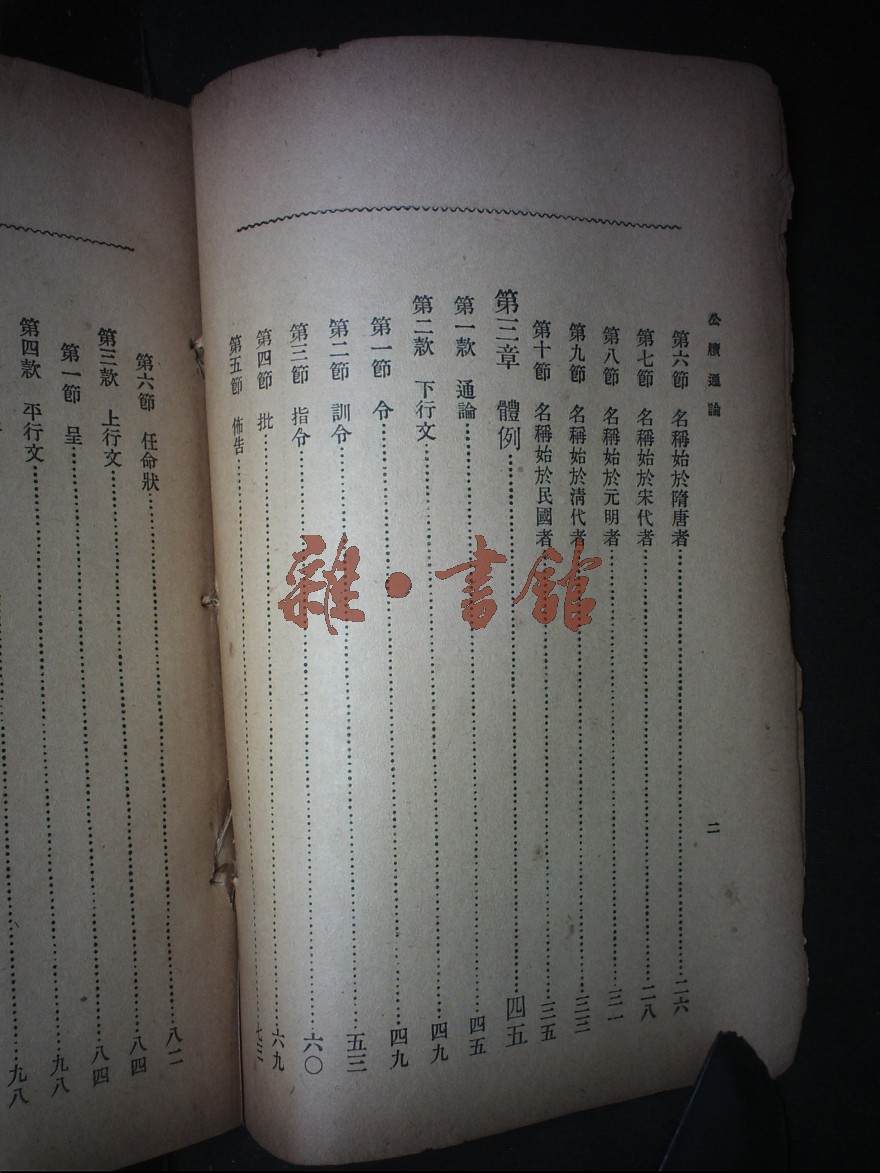 公牘通論
二
第六節 名稱始於隋唐者……二六
第七節 名稱始於宋代者……二八
第八節 名稱始於元明者……三一
第九節 名稱始於清代者……三三
第十節 名稱始於民國者……三五
第三章 體例……四五
第一款 通論……四五
第二款 下行文……四九
第一節 令……四九
第二節 訓令……五三
第三節 指令……六〇
第四節 批……六九
第五節 佈告……七三
第六節 任命狀……八二
第三款 上行文……八四
第一節 呈……八四
第四款 平行文……九八
九八
雜·書館